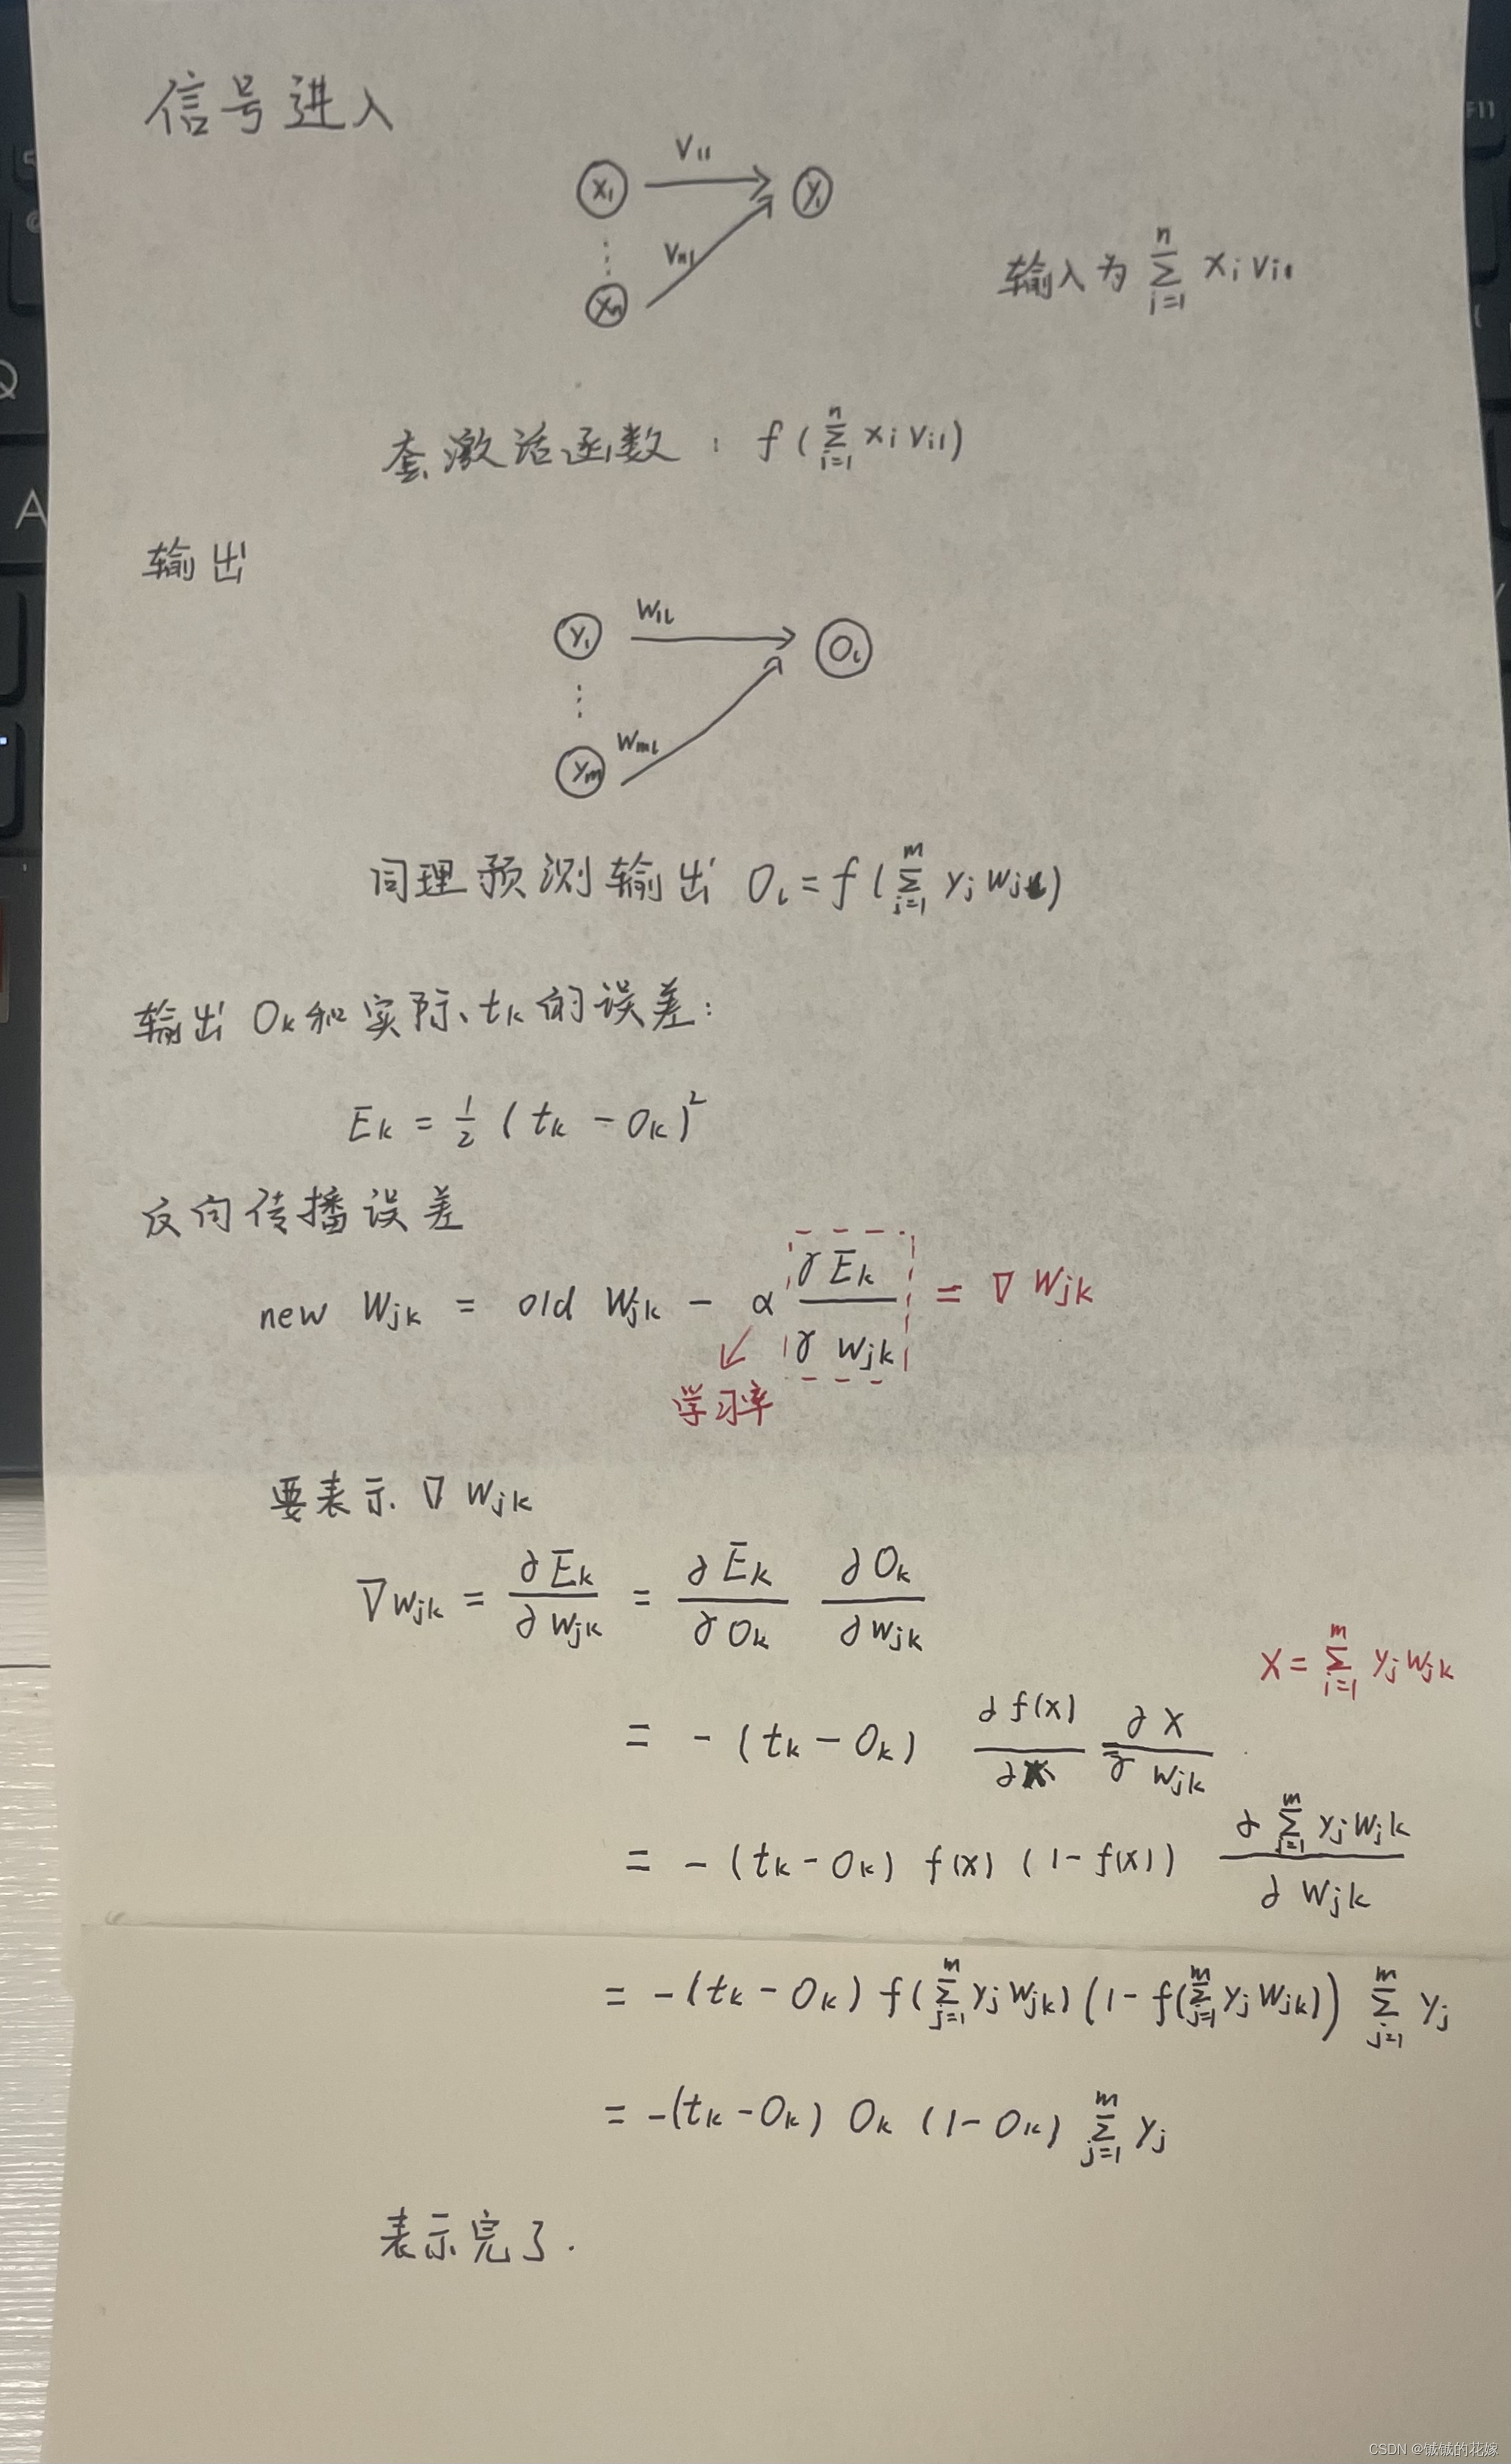 信号进入
X₁ V₁₁ y₁
⋮ Vₙ₁
Xₙ
输入为 ∑ⁿᵢ₌₁ xᵢ vᵢ₁
套激活函数: f(∑ⁿᵢ₌₁ xᵢ vᵢ₁)
输出
y₁ W₁ₗ Oₗ
⋮
yₘ Wₘₗ
同理预测输出 Oₗ = f(∑ᵐⱼ₌₁ yⱼ wⱼₗ)
输出 Oₖ 和实际 tₖ 的误差:
Eₖ = 1/2 (tₖ - Oₖ)²
反向传播误差
new Wⱼₖ = old Wⱼₖ - α ∂Eₖ/∂wⱼₖ = ∇ Wⱼₖ
学习率
要表示 ∇ Wⱼₖ
∇wⱼₖ = ∂Eₖ/∂wⱼₖ = ∂Eₖ/∂Oₖ ∂Oₖ/∂wⱼₖ
X = ∑ᵐᵢ₌₁ yⱼ wⱼₖ
= -(tₖ - Oₖ) ∂f(x)/∂x ∂x/∂wⱼₖ
= -(tₖ - Oₖ) f(x) (1 - f(x)) ∂∑ᵐⱼ₌₁ yⱼ wⱼₖ/∂wⱼₖ
= -(tₖ - Oₖ) f(∑ᵐⱼ₌₁ yⱼ wⱼₖ) (1 - f(∑ᵐⱼ₌₁ yⱼ wⱼₖ)) ∑ᵐⱼ₌₁ yⱼ
= -(tₖ - Oₖ) Oₖ (1 - Oₖ) ∑ᵐⱼ₌₁ yⱼ
表示完了.
Q
A
F11
CSDN @铖铖的花嫁